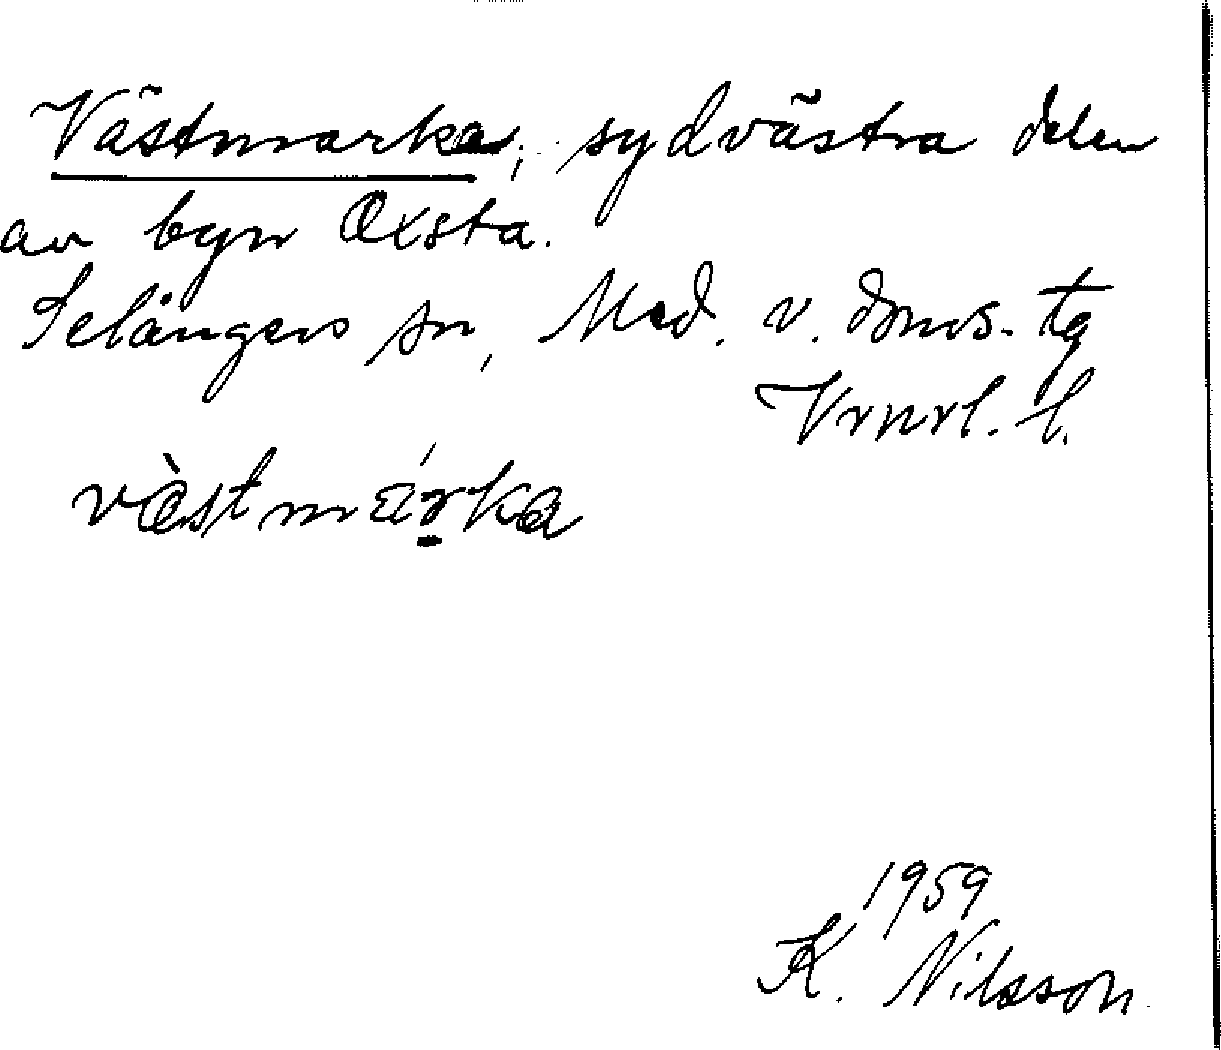 Västmarka, sydvästra delen
av byn Oxsta.
Selångers sn, Med. v. doms. tg
Vrnrl. l.
vàstmárka
1959
K. Nilsson